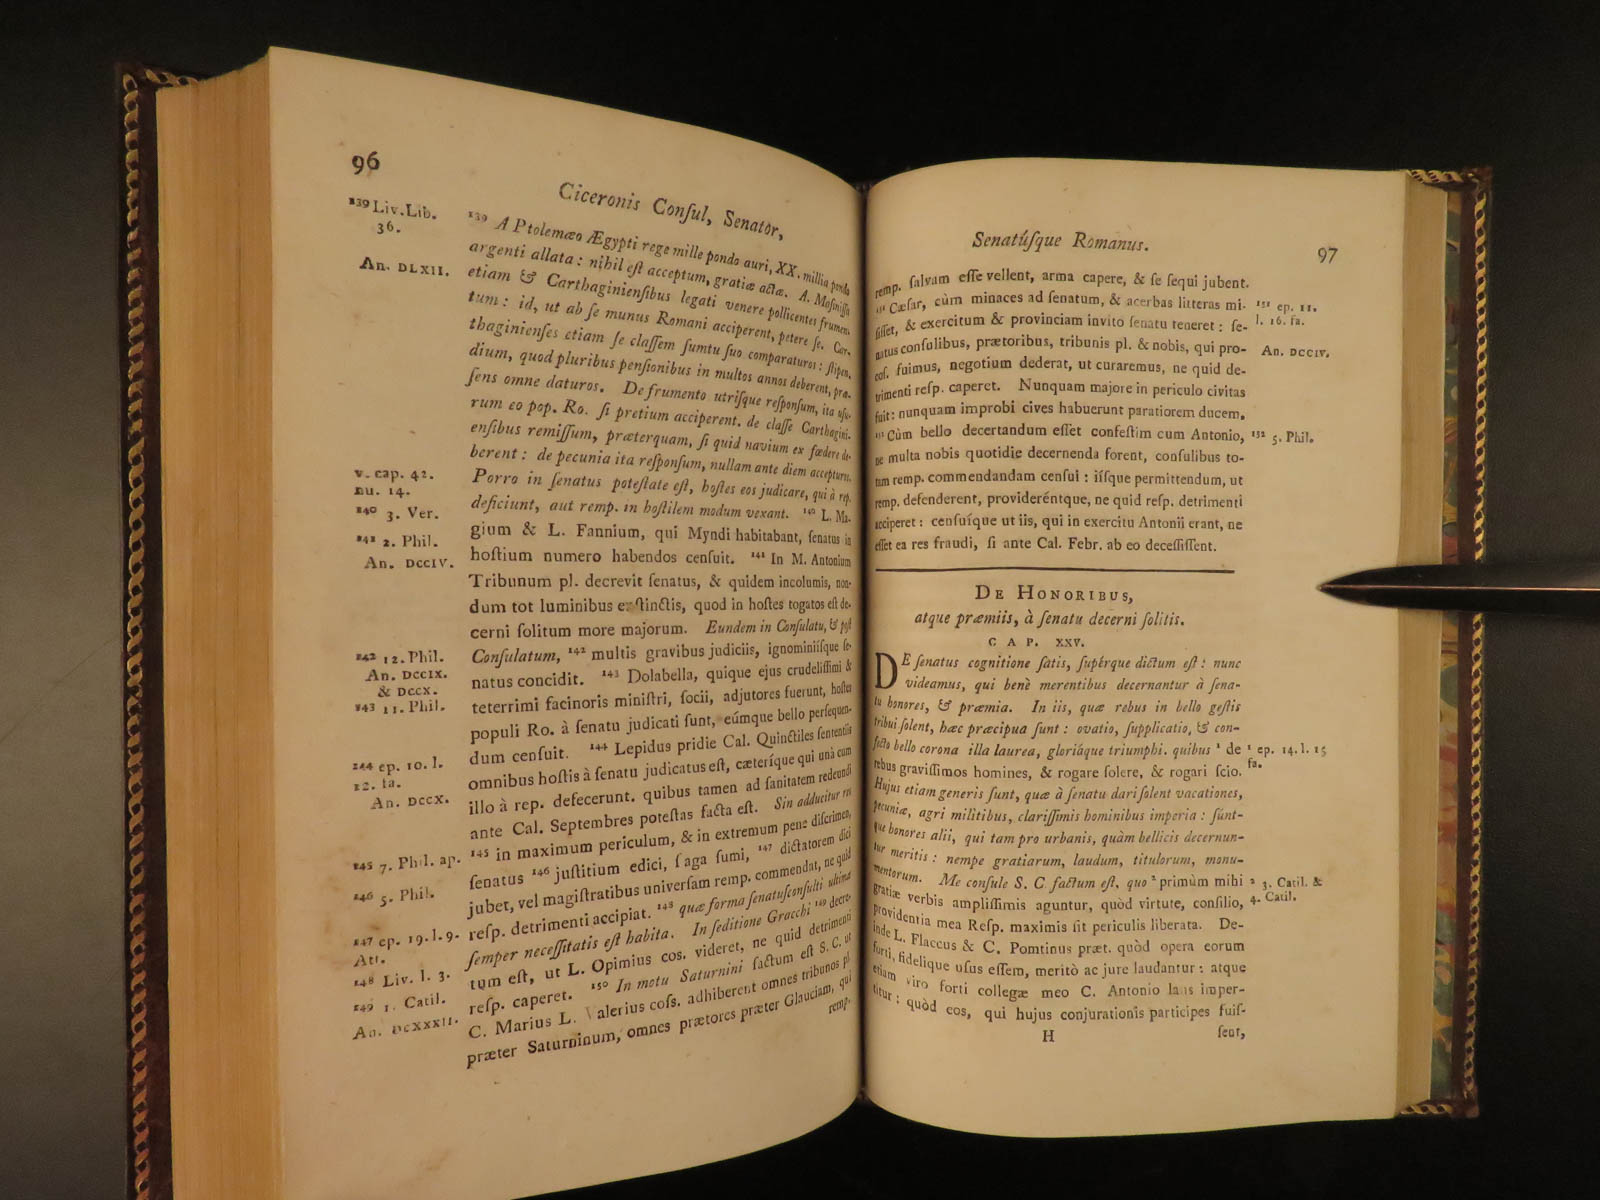 96
Ciceronis Conſul, Senator,
139 Liv. Lib.
36.
An. DLXII.
v. cap. 42.
nu. 14.
140 3. Ver.
141 2. Phil.
An. DCCIV.
142 12. Phil.
An. DCCIX.
& DCCX.
143 11. Phil.
144 ep. 10. l.
12. fa.
An. DCCX.
145 7. Phil. ap.
146 5. Phil.
147 ep. 19. l. 9.
Att.
148 Liv. l. 3.
149 1. Catil.
An. DCXXXII.
139 A Ptolemæo Ægypti rege mille pondo auri, XX. millia pondo
argenti allata: nihil eſt acceptum, gratiæ actæ. A Maſiniſſa
etiam & Carthaginienſibus legati venere pollicentes frumen-
tum: id, ut ab ſe munus Romani acciperent, petere ſe. Car-
thaginienſes etiam ſe claſſem ſumtu ſuo comparaturos: ſtipen-
dium, quod pluribus penſionibus in multos annos deberent, præ-
ſens omne daturos. De frumento utriſque reſponſum, ita uſu-
rum eo pop. Ro. ſi pretium acciperent. de claſſe Carthagini-
enſibus remiſſum, præterquam, ſi quid navium ex fœdere de-
berent: de pecunia ita reſponſum, nullam ante diem accepturos.
Porro in ſenatus poteſtate eſt, hoſtes eos judicare, qui à rep.
deficiunt, aut remp. in hoſtilem modum vexant. 140 L. Ma-
gium & L. Fannium, qui Myndi habitabant, ſenatus in
hoſtium numero habendos cenſuit. 141 In M. Antonium
Tribunum pl. decrevit ſenatus, & quidem incolumis, non-
dum tot luminibus extinctis, quod in hoſtes togatos eſt de-
cerni ſolitum more majorum. Eundem in Conſulatu, & poſt
Conſulatum, 142 multis gravibus judiciis, ignominiiſque ſe-
natus concidit. 143 Dolabella, quique ejus crudeliſſimi &
teterrimi facinoris miniſtri, ſocii, adjutores fuerunt, hoſtes
populi Ro. à ſenatu judicati ſunt, eúmque bello perſequen-
dum cenſuit. 144 Lepidus pridie Cal. Quinctiles ſententiis
omnibus hoſtis à ſenatu judicatus eſt, cæteríque qui unà cum
illo à rep. defecerunt. quibus tamen ad ſanitatem redeundi
ante Cal. Septembres poteſtas facta eſt. Sin adducitur res
145 in maximum periculum, & in extremum pene diſcrimen,
ſenatus 146 juſtitium edici, ſaga ſumi, 147 dictatorem dici
jubet, vel magiſtratibus univerſam remp. commendat, ne quid
reſp. detrimenti accipiat. 148 quæ forma ſenatuſconſulti ultimæ
ſemper neceſſitatis eſt habita. In ſeditione Gracchi 149 decre-
tum eſt, ut L. Opimius cos. videret, ne quid detrimenti
reſp. caperet. 150 In motu Saturnini factum eſt S. C. ut
C. Marius L. Valerius coſs. adhiberent omnes tribunos pl.
præter Saturninum, omnes prætores præter Glauciam, qui
remp.
Senatúſque Romanus.
97
remp. ſalvam eſſe vellent, arma capere, & ſe ſequi jubent.
151 Cæſar, cùm minaces ad ſenatum, & acerbas litteras mi-
ſiſſet, & exercitum & provinciam invito ſenatu teneret: ſe-
natus conſulibus, prætoribus, tribunis pl. & nobis, qui pro-
coſ. fuimus, negotium dederat, ut curaremus, ne quid de-
trimenti reſp. caperet. Nunquam majore in periculo civitas
fuit: nunquam improbi cives habuerunt paratiorem ducem.
152 Cùm bello decertandum eſſet confeſtim cum Antonio,
ne multa nobis quotidie decernenda forent, conſulibus to-
tam remp. commendandam cenſui: iíſque permittendum, ut
remp. defenderent, provideréntque, ne quid reſp. detrimenti
acciperet: cenſuíque ut iis, qui in exercitu Antonii erant, ne
eſſet ea res fraudi, ſi ante Cal. Febr. ab eo deceſſiſſent.
151 ep. 11.
l. 16. fa.
An. DCCIV.
152 5. Phil.
DE HONORIBUS,
atque præmiis, à ſenatu decerni ſolitis.
CAP. XXV.
DE ſenatus cognitione ſatis, ſupérque dictum eſt: nunc
videamus, qui benè merentibus decernantur à ſena-
tu honores, & præmia. In iis, quæ rebus in bello geſtis
tribui ſolent, hæc præcipua ſunt: ovatio, ſupplicatio, & con-
fecto bello corona illa laurea, gloriáque triumphi. quibus 1 de
rebus graviſſimos homines, & rogare ſolere, & rogari ſcio.
Hujus etiam generis ſunt, quæ à ſenatu dari ſolent vacationes,
pecuniæ, agri militibus, clariſſimis hominibus imperia: ſúnt-
que honores alii, qui tam pro urbanis, quàm bellicis decernun-
tur meritis: nempe gratiarum, laudum, titulorum, monu-
mentorum. Me conſule S. C. factum eſt, quo 2 primùm mihi
gratiæ verbis ampliſſimis aguntur, quòd virtute, conſilio,
providentia mea Reſp. maximis ſit periculis liberata. De-
inde L. Flaccus & C. Pomtinus præt. quòd opera eorum
forti, fidelique uſus eſſem, meritò ac jure laudantur: atque
etiam viro forti collegæ meo C. Antonio laus imper-
titur: quòd eos, qui hujus conjurationis participes fuiſ-
1 ep. 14. l. 15
fa.
2 3. Catil. &
4. Catil.
H
ſent,